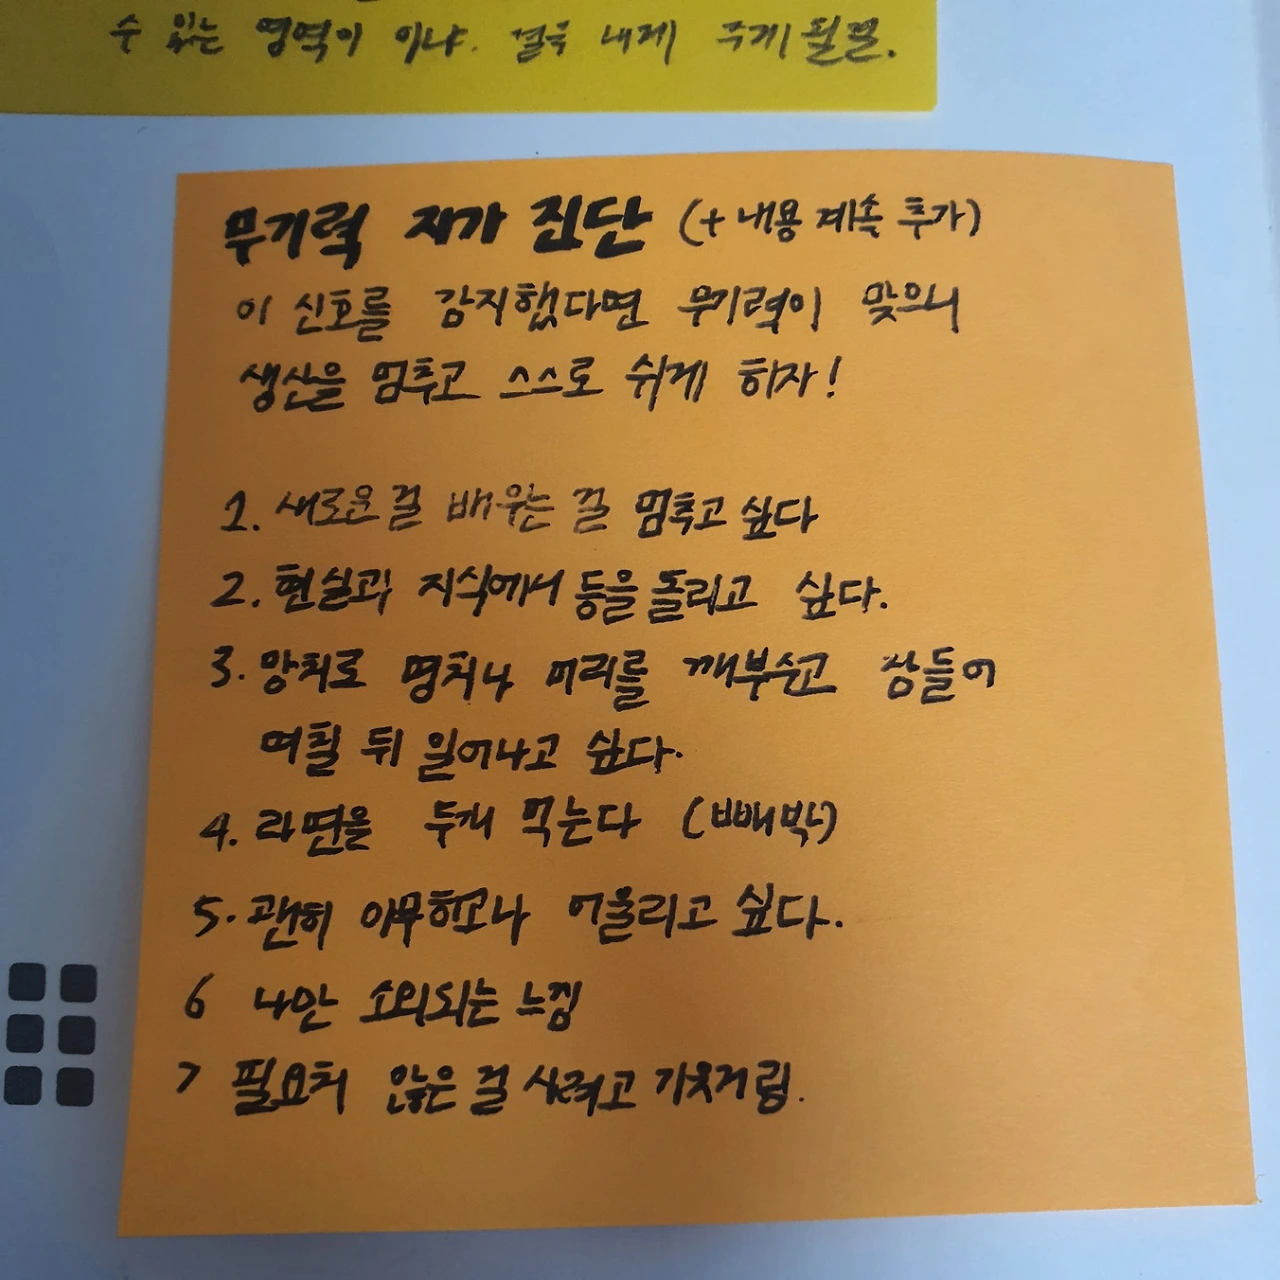 수 있는 영역이 아냐. 결국 내게 주게 될걸.
무기력 자가 진단 (+ 내용 계속 추가)
이 신호를 감지했다면 무기력이 맞으니
생산을 멈추고 스스로 쉬게 하자!
1. 새로운 걸 배우는 걸 멈추고 싶다
2. 현실과 지식에서 등을 돌리고 싶다.
3. 망치로 명치나 머리를 깨부수고 잠들어
며칠 뒤 일어나고 싶다.
4. 라면을 두개 먹는다 (빼박)
5. 괜히 아무하고나 어울리고 싶다.
6 나만 소외되는 느낌
7 필요치 않은 걸 사려고 기웃거림.